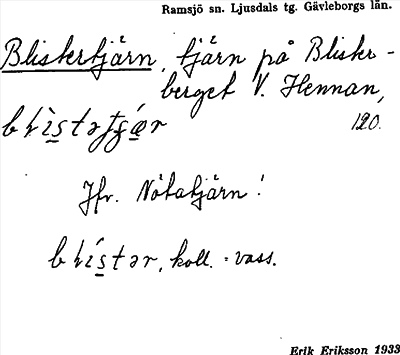 Ramsjö sn. Ljusdals tg. Gävleborgs län.
Blistertjärn, tjärn på Blister-
berget V. Hennan,
120.
Jfr. Nötatjärn!
koll. = vass.
Erik Eriksson 1933